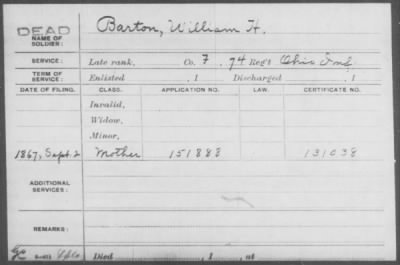 DEAD
NAME OF SOLDIER: Barton, William H.
SERVICE: Late rank, Co. F, 74 Reg't Ohio Inf.
TERM OF SERVICE: Enlisted , 1 Discharged , 1
DATE OF FILING. CLASS. APPLICATION NO. LAW. CERTIFICATE NO.
Invalid,
Widow,
Minor,
1867, Sept. 2 Mother 151888 131038
ADDITIONAL SERVICES:
REMARKS:
Died , 1 , at